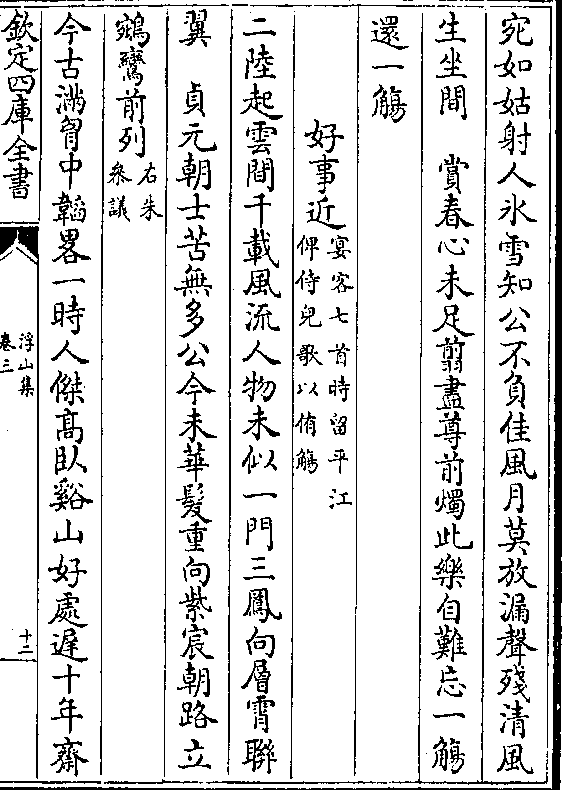 宛如姑射人氷雪知公不負佳風月莫放漏聲殘清風
生坐間　賞春心未足翦盡尊前燭此樂自難忘一觴
還一觴
好事近宴客七首時留平江
俾侍兒歌以侑觴
二陸起雲間千載風流人物未似一門三鳳向層霄聯
翼　貞元朝士苦無多公今未華髮重向紫宸朝路立
鵷鸞前列右朱
叅議
今古滿胷中韜畧一時人傑髙臥谿山好處遲十年齋
欽定四庫全書
浮山集
卷三
十二